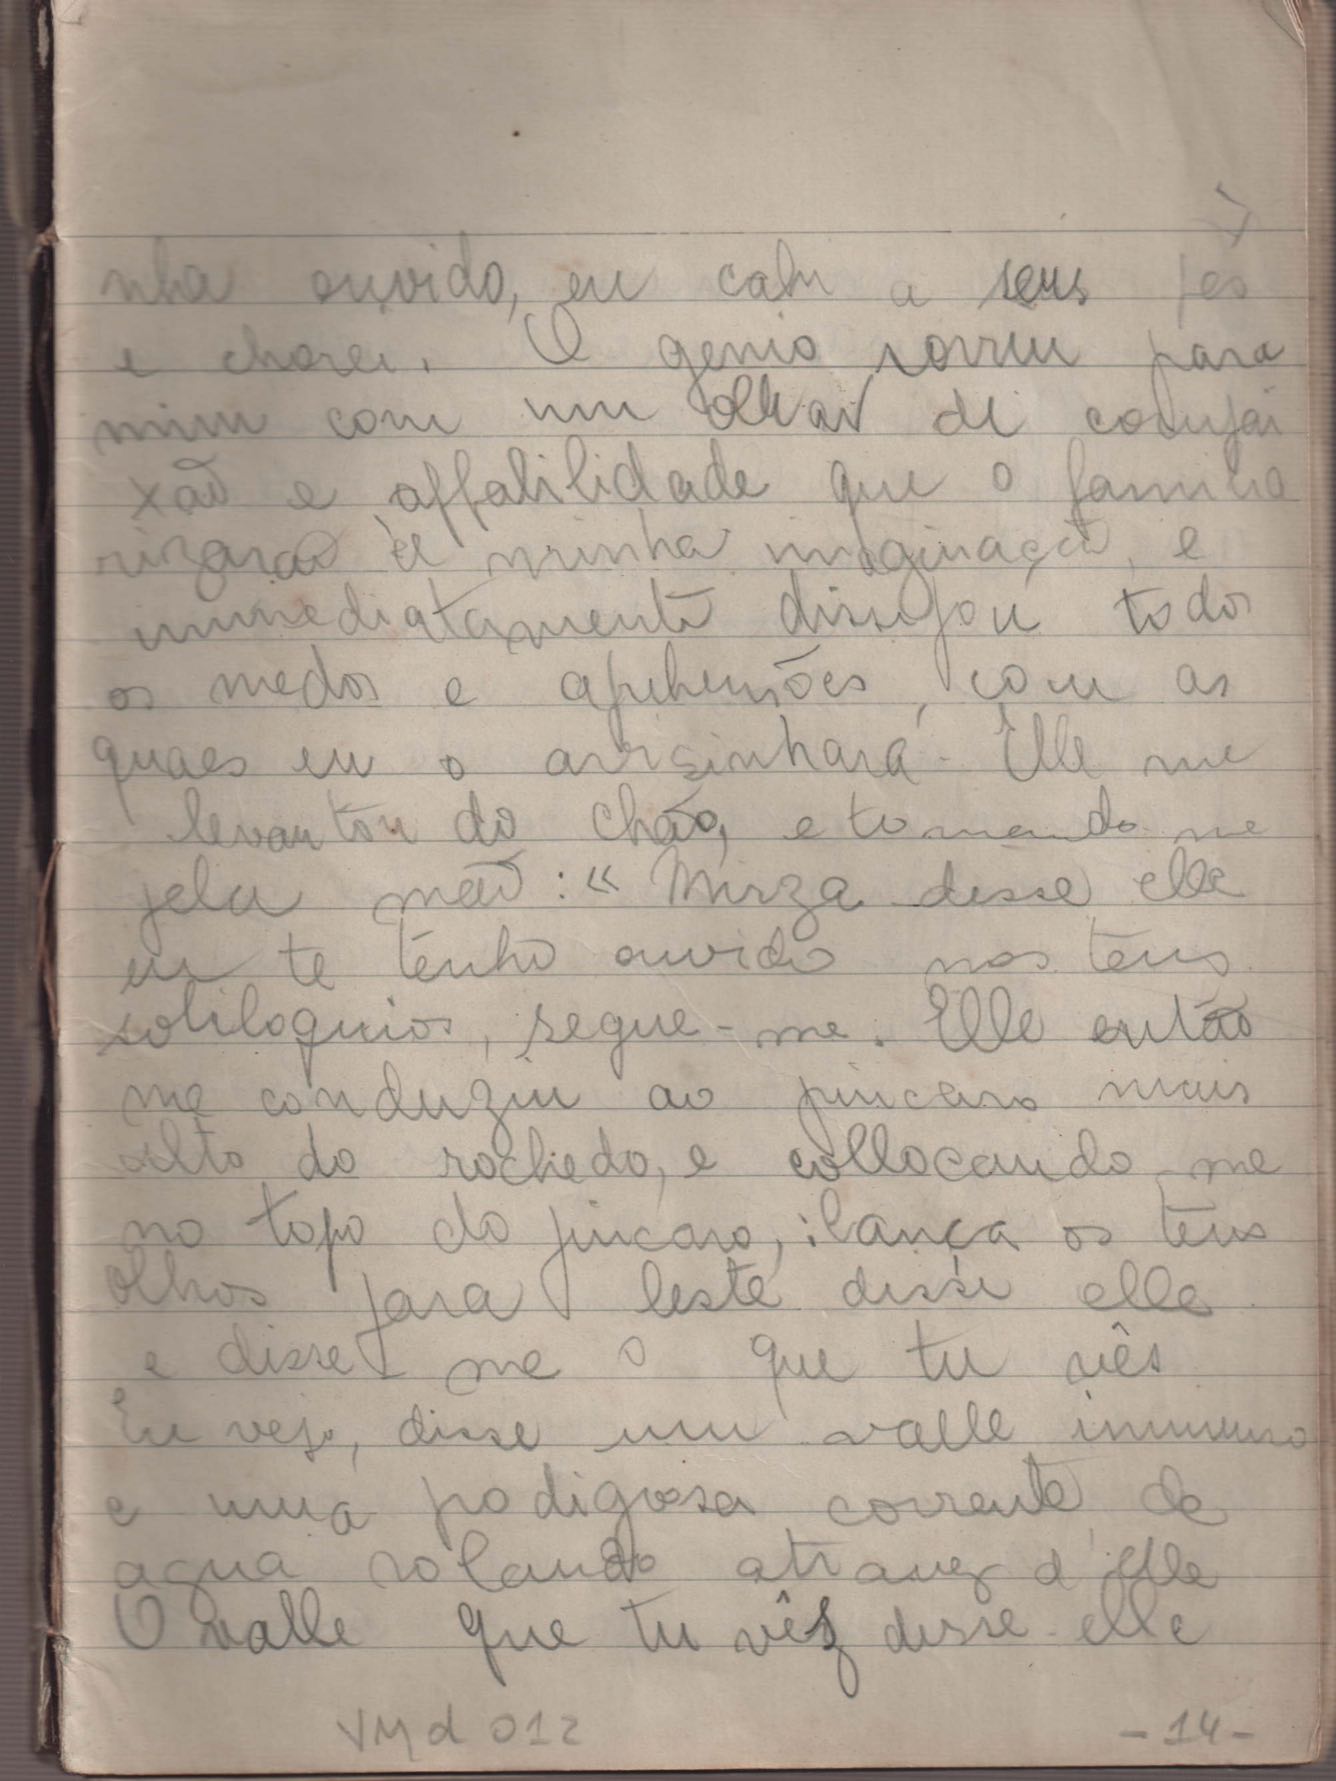 nha ouvido, eu cahi a seus pés
e chorei. O genio sorriu para
mim com um olhar de compai
xão e affabilidade que o familia
rizaraõ á minha imaginação, e
immediatamente dissipou todos
os medos e aprehensões, com as
quaes eu o avisinhara. Elle me
levantou do chão, e tomando-me
pela mão: « Mirza disse elle
eu te tenho ouvido nos teus
soliloquios, segue-me. Elle então
me conduziu ao pincaro mais
alto do rochedo, e collocando-me
no topo do pincaro, : lança os teus
olhos para leste disse elle
e disse-me o que tu vês
Eu vejo, disse um valle immenso
e uma prodigiosa corrente de
agua rolando atravez d'elle
O valle que tu vês disse elle
VMd 012 -14-